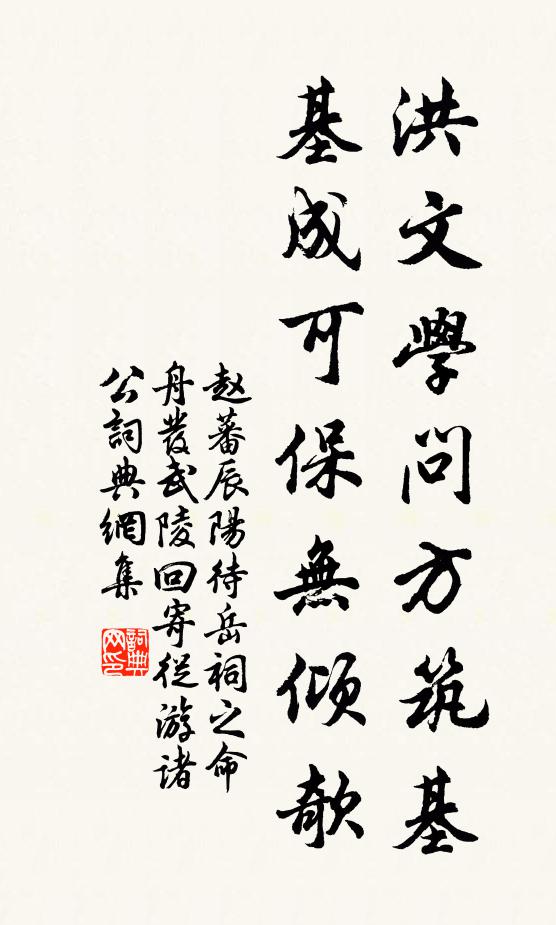 洪文學問方筑基
基成可保無傾欹
赵蕃辰陽待岳祠之命
舟發武陵回寄從游諸
公詞典網集
詞典网印